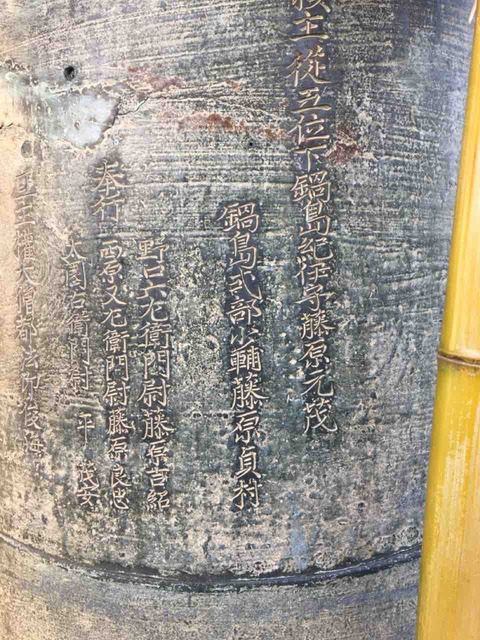 主従五位下鍋島紀伊守藤原元茂
鍋島式部少輔藤原貞村
野口六左衛門尉藤原吉紹
奉行 西原又左衛門尉藤原良忠
右衛門尉 平 茂安
權大僧都法印